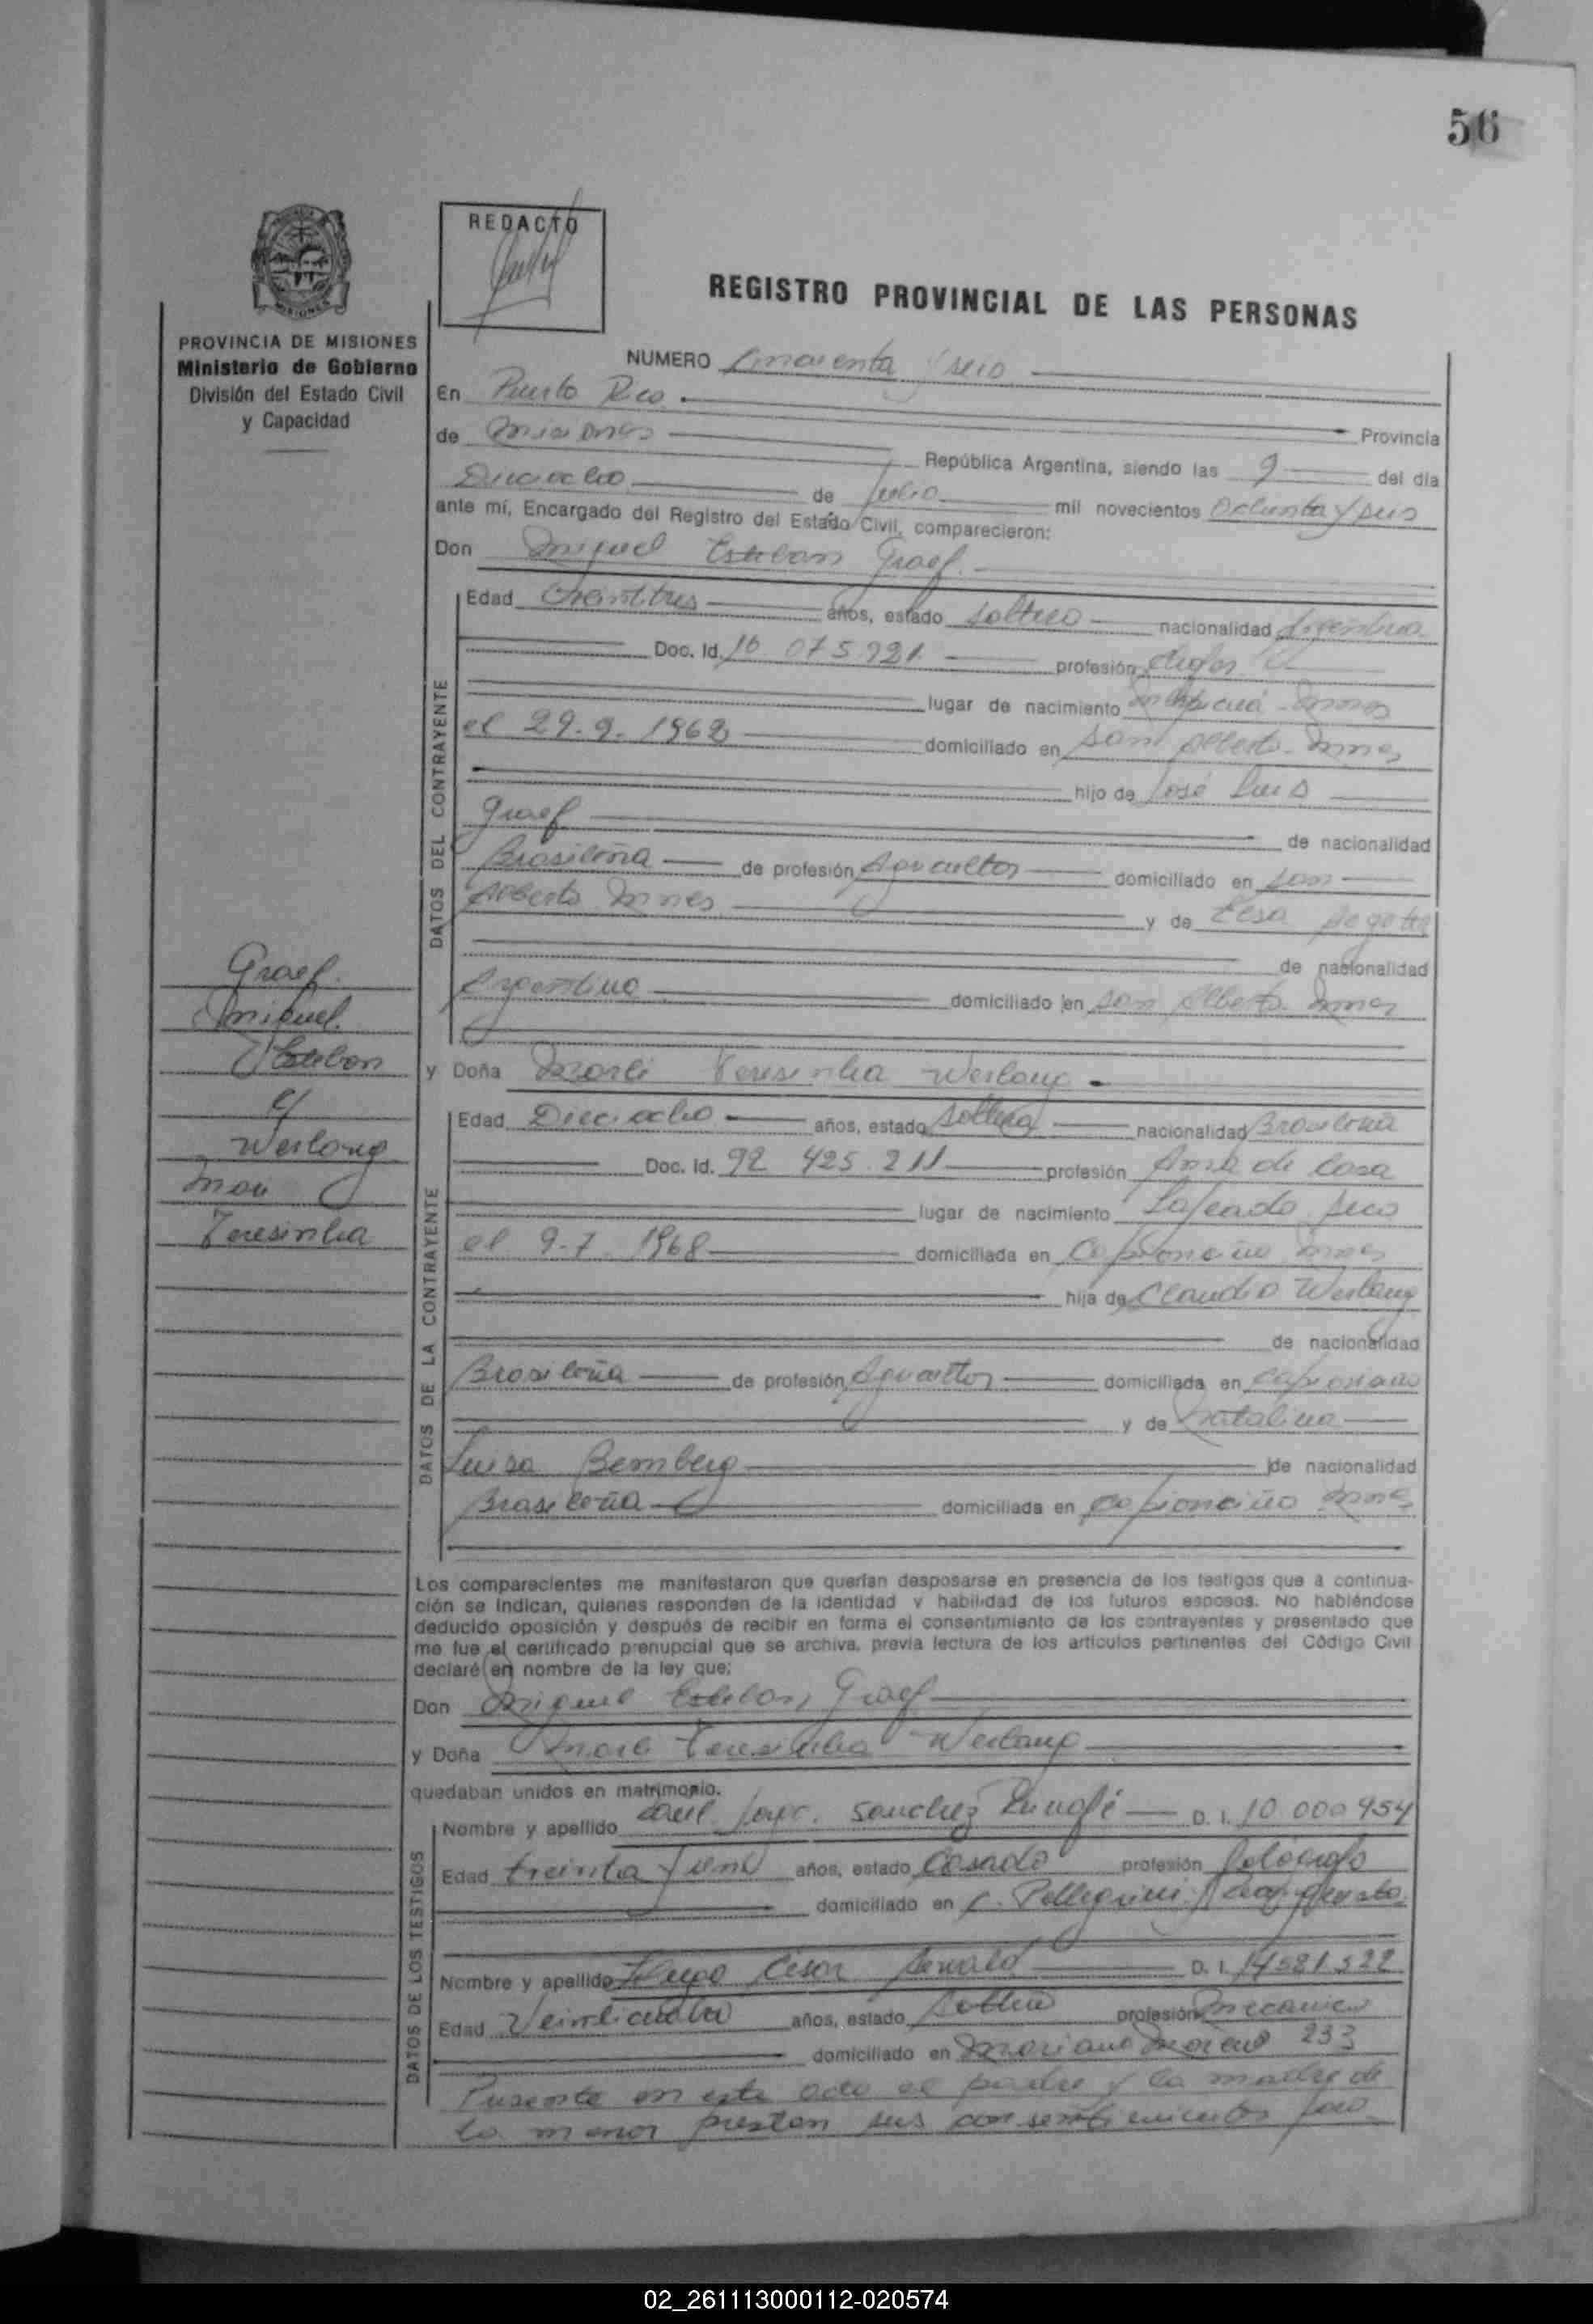 56
REDACTO
REGISTRO PROVINCIAL DE LAS PERSONAS
PROVINCIA DE MISIONES
Ministerio de Gobierno
División del Estado Civil
y Capacidad
NUMERO Cincuenta y seis
En Puerto Rico
de Misiones Provincia
República Argentina, siendo las 9 del día
Dieciocho de Julio mil novecientos Ochenta y seis
ante mí, Encargado del Registro del Estado Civil, comparecieron:
Don Miguel Esteban Graef
DATOS DEL CONTRAYENTE
Edad Veintitres años, estado soltero nacionalidad Argentina
Doc. Id. 16 075.921 profesión chofer
lugar de nacimiento Mnes
el 29-9-1962 domiciliado en San Alberto Mnes
hijo de José Luis
Graef de nacionalidad
Brasileña de profesión Agricultor domiciliado en San
Alberto Mnes y de
de nacionalidad
Argentina domiciliado en San Alberto Mnes
Graef
Miguel
Esteban
c/
Werlang
Marli
Teresinha
y Doña Marli Teresinha Werlang
DATOS DE LA CONTRAYENTE
Edad Dieciocho años, estado soltera nacionalidad Brasileña
Doc. Id. 92 425.211 profesión Ama de Casa
lugar de nacimiento Lajeado Seco
el 9-7-1968 domiciliada en Capioviciño Mnes
hija de Claudio Werlang
de nacionalidad
Brasileña de profesión Agricultor domiciliada en
y de Natalina
Luisa Bemberg de nacionalidad
Brasileña domiciliada en Capioviciño Mnes
Los comparecientes me manifestaron que querían desposarse en presencia de los testigos que a continua-
ción se indican, quienes responden de la identidad y habilidad de los futuros esposos. No habiéndose
deducido oposición y después de recibir en forma el consentimiento de los contrayentes y presentado que
me fue el certificado prenupcial que se archiva, previa lectura de los artículos pertinentes del Código Civil
declaré en nombre de la ley que:
Don Miguel Esteban Graef
y Doña Marli Teresinha Werlang
quedaban unidos en matrimonio.
DATOS DE LOS TESTIGOS
Nombre y apellido Sanchez D. I. 10 000 954
Edad treinta y uno años, estado Casado profesión fotógrafo
domiciliado en C. Pellegrini
Nombre y apellido Hugo César D. I. 14581.522
Edad Veinticuatro años, estado Soltero profesión Mecanico
domiciliado en Mariano Moreno 233
Presente en este acto el padre y la madre de
la menor prestan sus consentimientos para
02_261113000112-020574